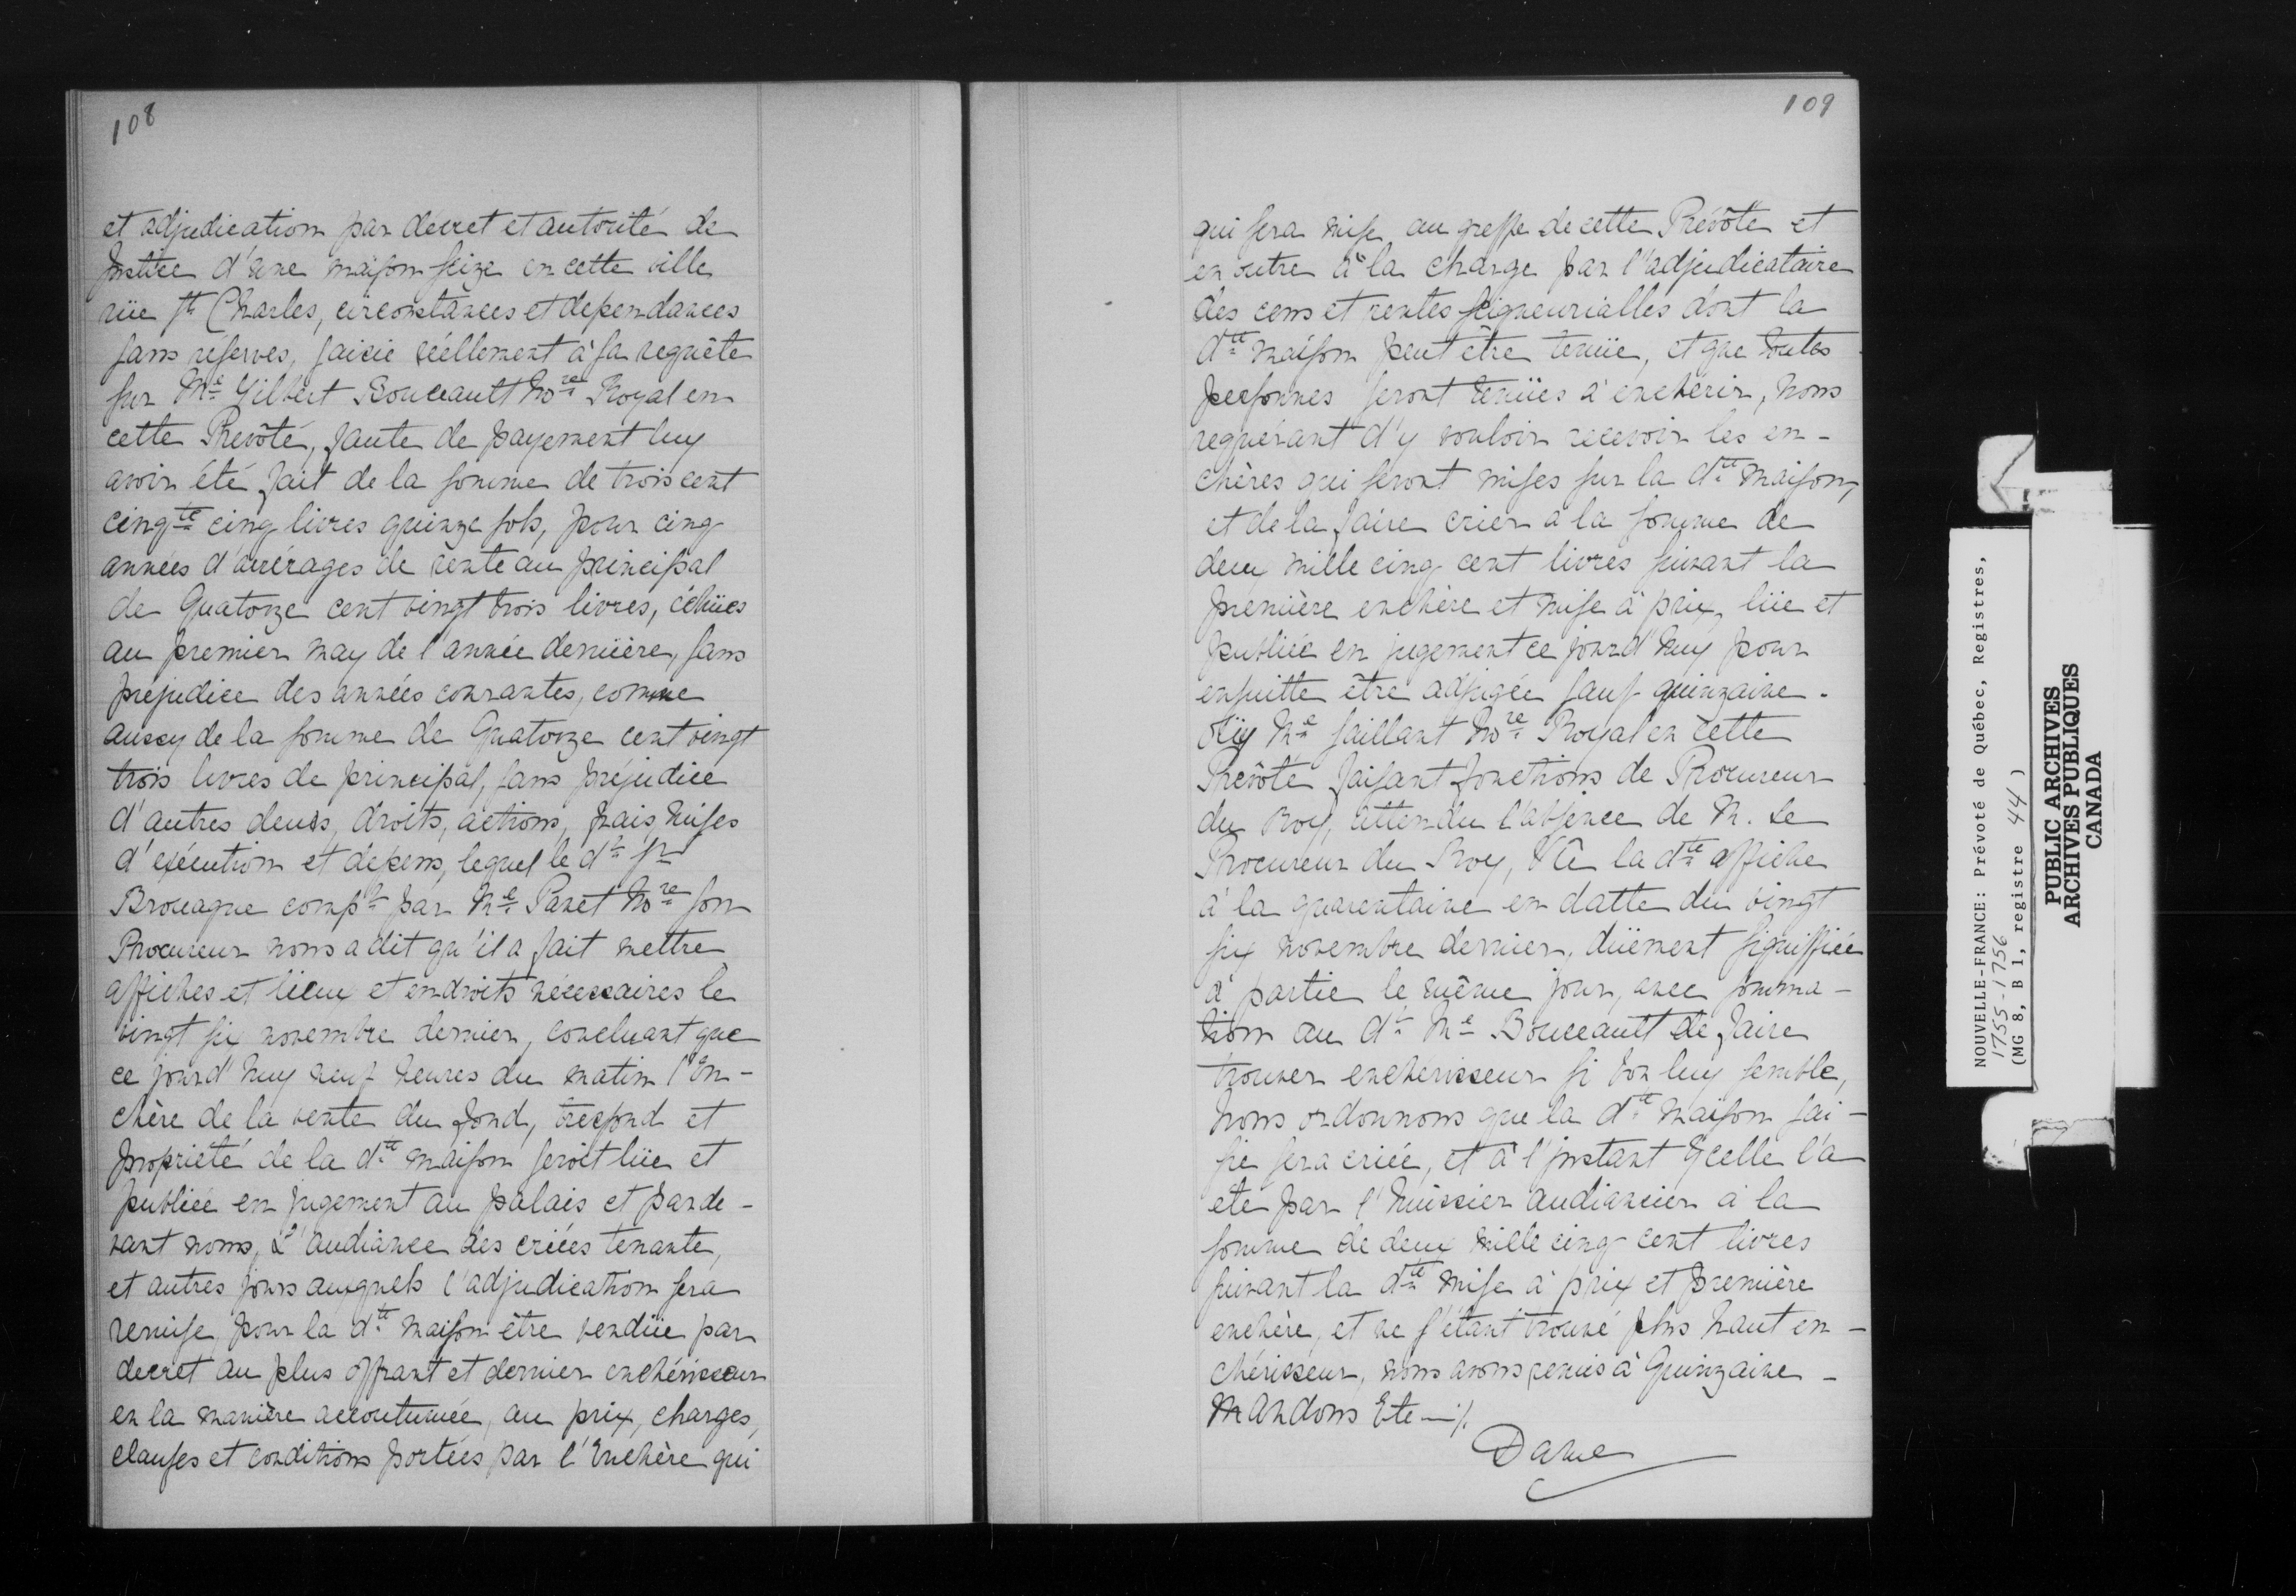 108
et adjudication par decret et autorité de
Justice d'une maison seize en cette ville
rüe St Charles, circonstances et dependances
sans réserves, saisie réellement à sa requête
sur Me Gilbert Bouceault Nore Royal en
cette Prevôté, faute de payement luy
avoir été fait de la somme de trois cent
cinqte cinq livres quinze sols, pour cinq
années d'arrérages de rente au principal
de Quatorze cent vingt trois livres, échües
au premier may de l'année dernière, sans
préjudice des années courantes, comme
aussy de la somme de Quatorze cent vingt
trois livres de principal, sans préjudice
d'autres deubs, droits, actions, frais, mises
d'exécution et depens, lequel le dt Sr
Brouague compt par Me Panet Nore son
Procureur nous a dit qu'il a fait mettre
affiches et lieux et endroits nécessaires le
vingt six novembre dernier, concluant que
ce jourd'huy neuf heures du matin l'En-
chère de la vente du fond, trésfond et
propriété de la dte maison seroit lüe et
publiée en jugement au palais et parde-
vant nous, L'audiance des criées tenante,
et autres jours auxquels l'adjudication sera
remise pour la dte maison être vendüe par
decret au plus offrant et dernier enchérisseur
en la manière accoutumée, au prix, charges,
clauses et conditions portées par l'Enchère qui
109
qui sera mise au greffe de cette Prévôté et
en outre à la charge par l'adjudicataire
des cens et rentes seigneurialles dont la
dte maison peut être tenüe, et que toutes
personnes seront tenües à enchérir, nous
requérant d'y vouloir recevoir les en-
chères qui seront mises sur la dte maison,
et de la faire crier à la somme de
deux mille cinq cent livres suivant la
première enchère et mise à prix, lüe et
publiée en jugement ce jourd'huy pour
ensuitte être adjugée sauf quinzaine.
Oüy Me Saillant Nore Royal en cette
Prévôté faisant fonctions de Procureur
du Roy, attendu l'absence de M. Le
Procureur du Roy, Vû la dte affiche
à la quarentaine en datte du vingt
six novembre dernier, düement signiffiée
à partie le même jour, avec somma-
tion au dt Me Bouceault de faire
trouver encherisseur si bon luy semble,
Nous ordonnons que la dte maison sai-
sie sera criée, et à l'jnstant ycelle l'a
eté par l'huissier audiancier à la
somme de deux mille cinq cent livres
suivant la dte mise à prix et première
enchère, et ne s'étant trouvé plus haut en-
chérisseur, nous avons remis à Quinzaine -
Mandons Etc —./.
Daine
NOUVELLE-FRANCE: Prévoté de Québec, Registres,
1755-1756
(MG 8, B 1, registre 44)
PUBLIC ARCHIVES
ARCHIVES PUBLIQUES
CANADA